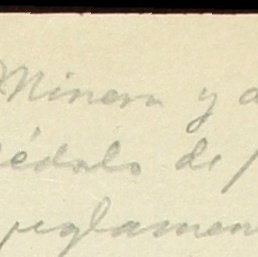 Minera y a
édalo de
reglamen